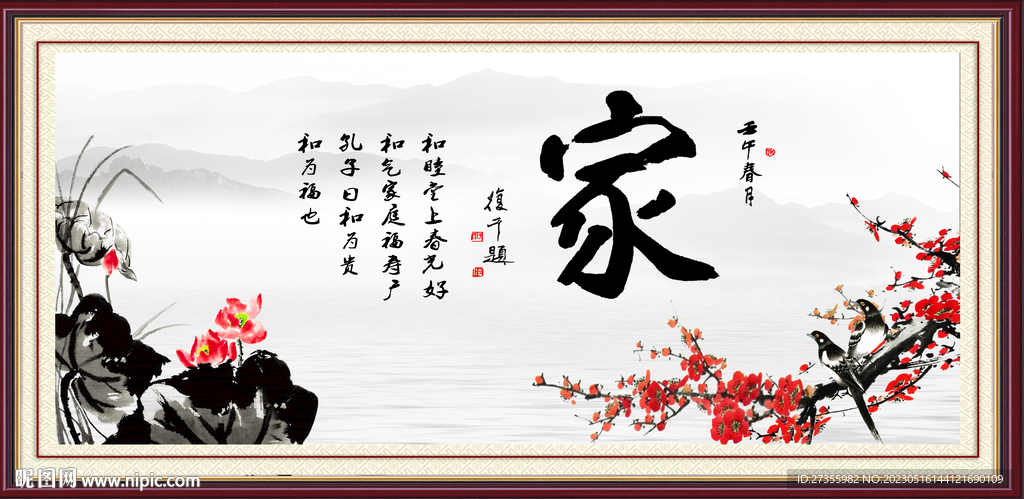 壬午春月
家
復平題
和睦堂上春光好
和气家庭福寿广
孔子曰和为贵
和为福也
昵图网 www.nipic.com
ID:27355982 NO:20230516144121690109